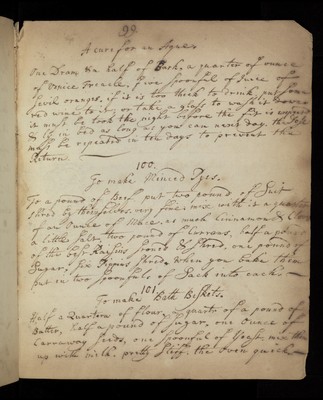 99
A cure for an Ague
One Dram & a half of Bark, a quarter of ounce
of Venice Treacle, five spoonful of Juice of
Sevil oranges, if it is too thick to drink, put some
red wine to it, or take a glass to wash it down
it must be took the night before the fit is expected
& lye in bed as long as you can next day, the same
must be repeated in ten days to prevent the
Return
100.
To make Minced Pyes.
To a pound of Beef put two pound of Suit
shred by themselves very fine, mix with it a quarter
of an Ounce of Mace, as much Cinnamon, & Cloves
a little Salt, two pound of Currans, half a pound
of the best Raisins ston'd & shred, one pound of
Sugar, Six Pipins Shred, when you bake them
put in two spoonfuls of Sack into each
101.
To make Bath Biskets.
Half a Quartern of flour, 3 quarts of a pound of
Butter, half a pound of Sugar, one Ounce of
Carraway seeds, one spoonful of Yeast, mix them
up with milk pretty Stiff, the Oven quick